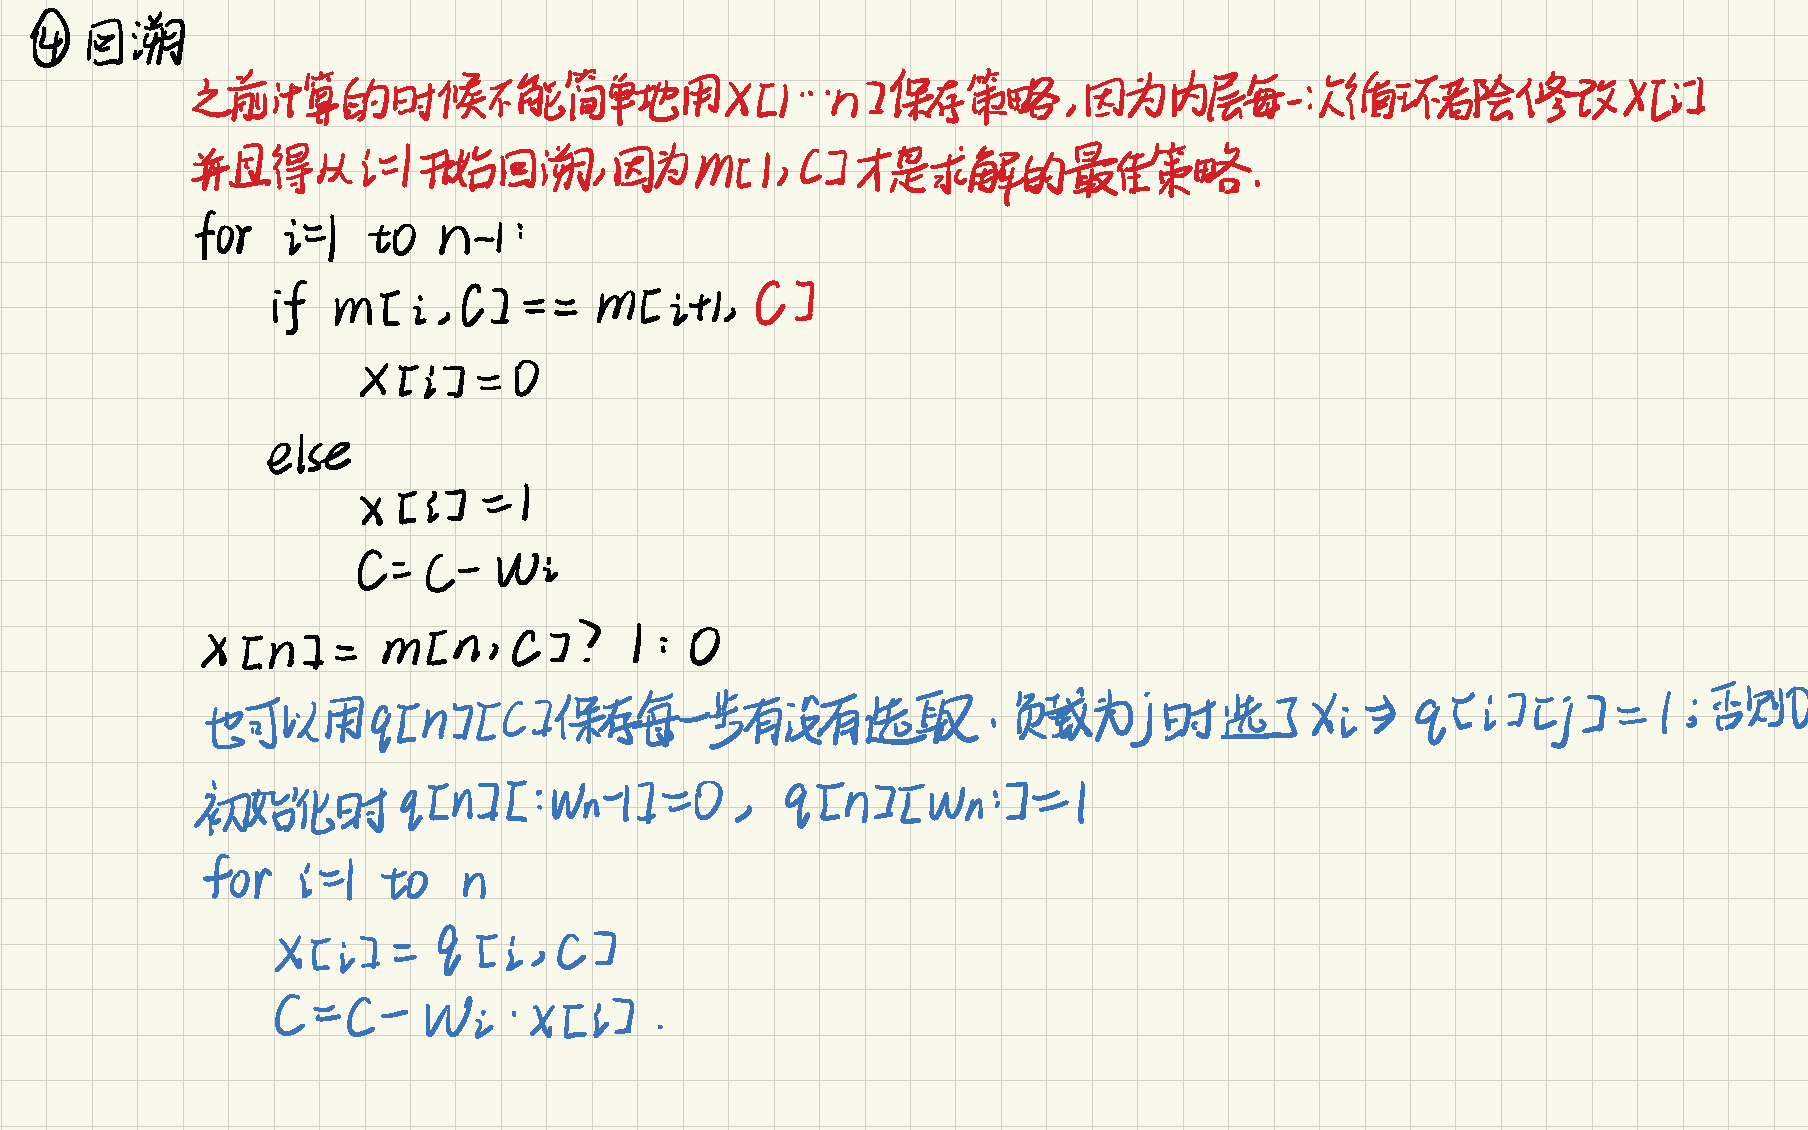 ④回溯
之前计算的时候不能简单地用X[1…n]保存策略,因为内层每一次循环都会修改X[i]
并且得从i=1开始回溯,因为m[1,C]才是求解的最佳策略.
for i=1 to n-1:
if m[i,C]==m[i+1,C]
X[i]=0
else
X[i]=1
C=C-Wi
X[n]=m[n,C]? 1:0
也可以用q[n][C]保存每一步有没有选取.负载为j时选了Xi⇒q[i][j]=1;否则0
初始化时q[n][:Wn-1]=0, q[n][Wn:]=1
for i=1 to n
X[i]=q[i,C]
C=C-Wi·X[i].